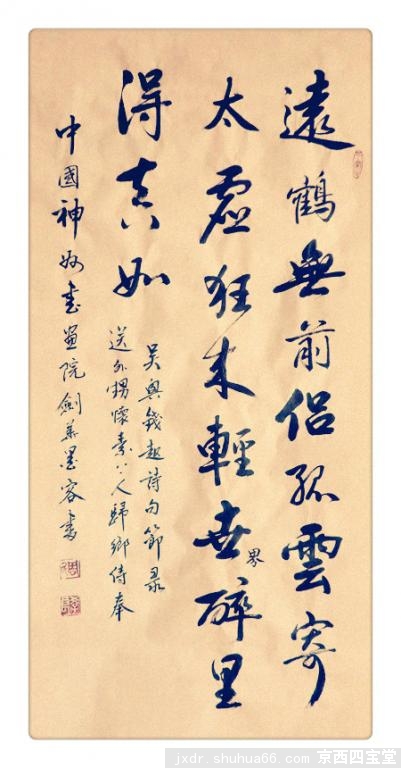 遠鶴無前侣孤雲寄
太虛狂来輕世界醉里
得真如
吴興錢起詩句節录
送外甥懷素上人歸鄉侍奉
中國神州书畫院劍華墨客书
jxdr.shuhua66.com 京西四宝堂